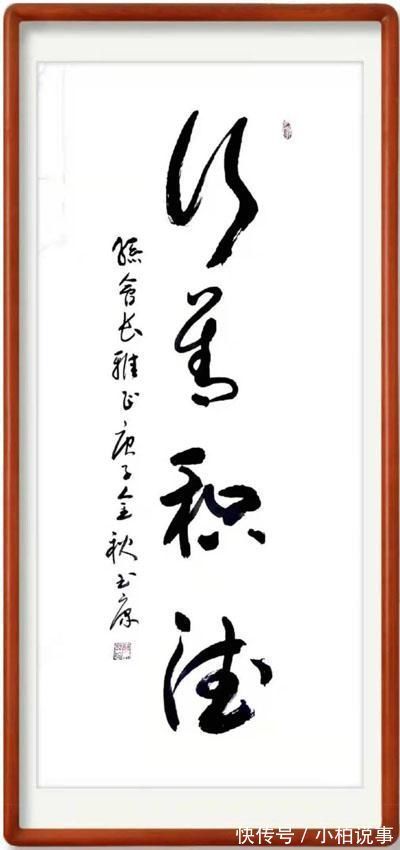 行善积德
孙会长雅正庚子金秋玉康
快传号/小柏说事